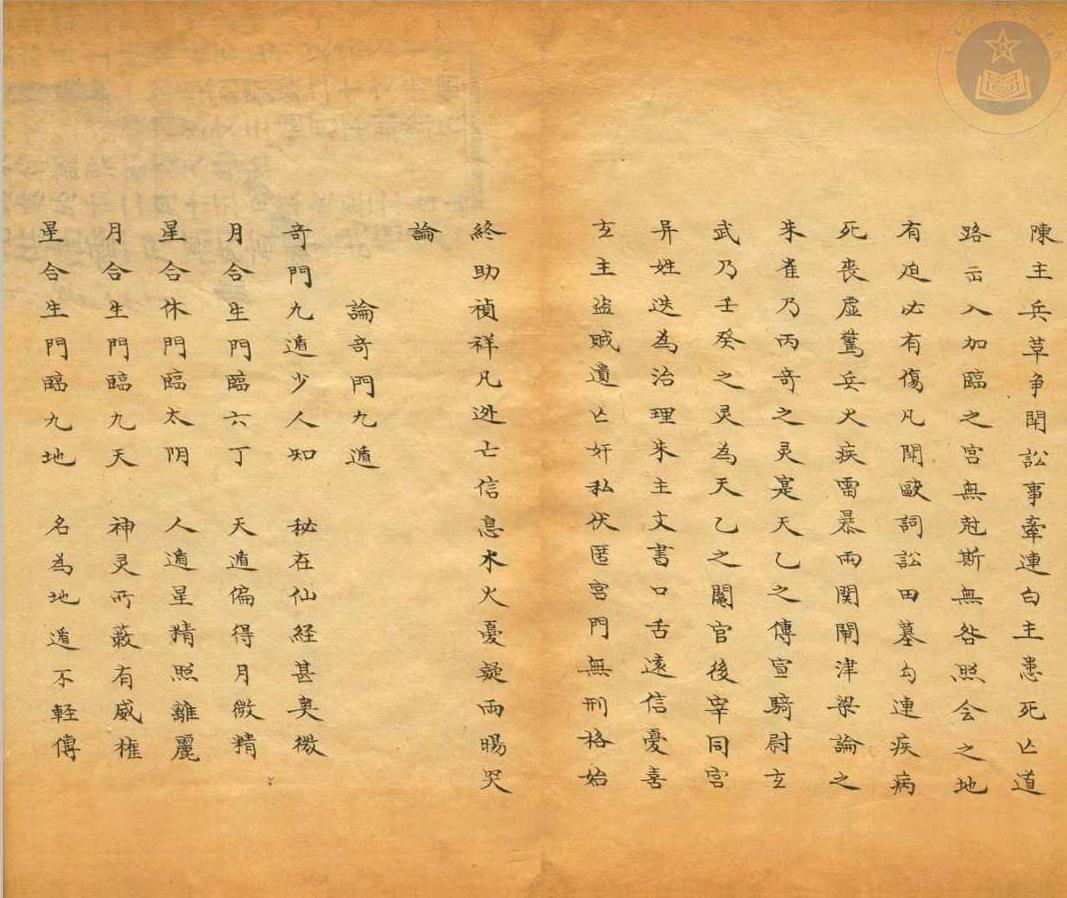 陳主兵草争閗訟事牽連白主患死亡道
路而入加臨之宮無尅斯無咎照会之地
有迫必有傷凡閗歐詞訟田墓勾連疾病
死喪虛驚兵火疾雷暴雨関闌津梁論之
朱雀乃丙奇之灵寔天乙之傳宣騎尉玄
武乃壬癸之灵為天乙之闈官後宰同宮
异姓迭為治理朱主文書口舌遠信憂喜
玄主盗贼遺亡奸私伏匿宮門無刑格始
終助禎祥凡逃亡信息水火憂疑雨暘哭
論
論奇門九遁
奇門九遁少人知　秘在仙経甚奥微
月合生門臨六丁　天遁偏得月微精
星合休門臨太阴　人遁星精照離麗
月合生門臨九天　神灵所蔽有威権
星合生門臨九地　名為地遁不軽傳